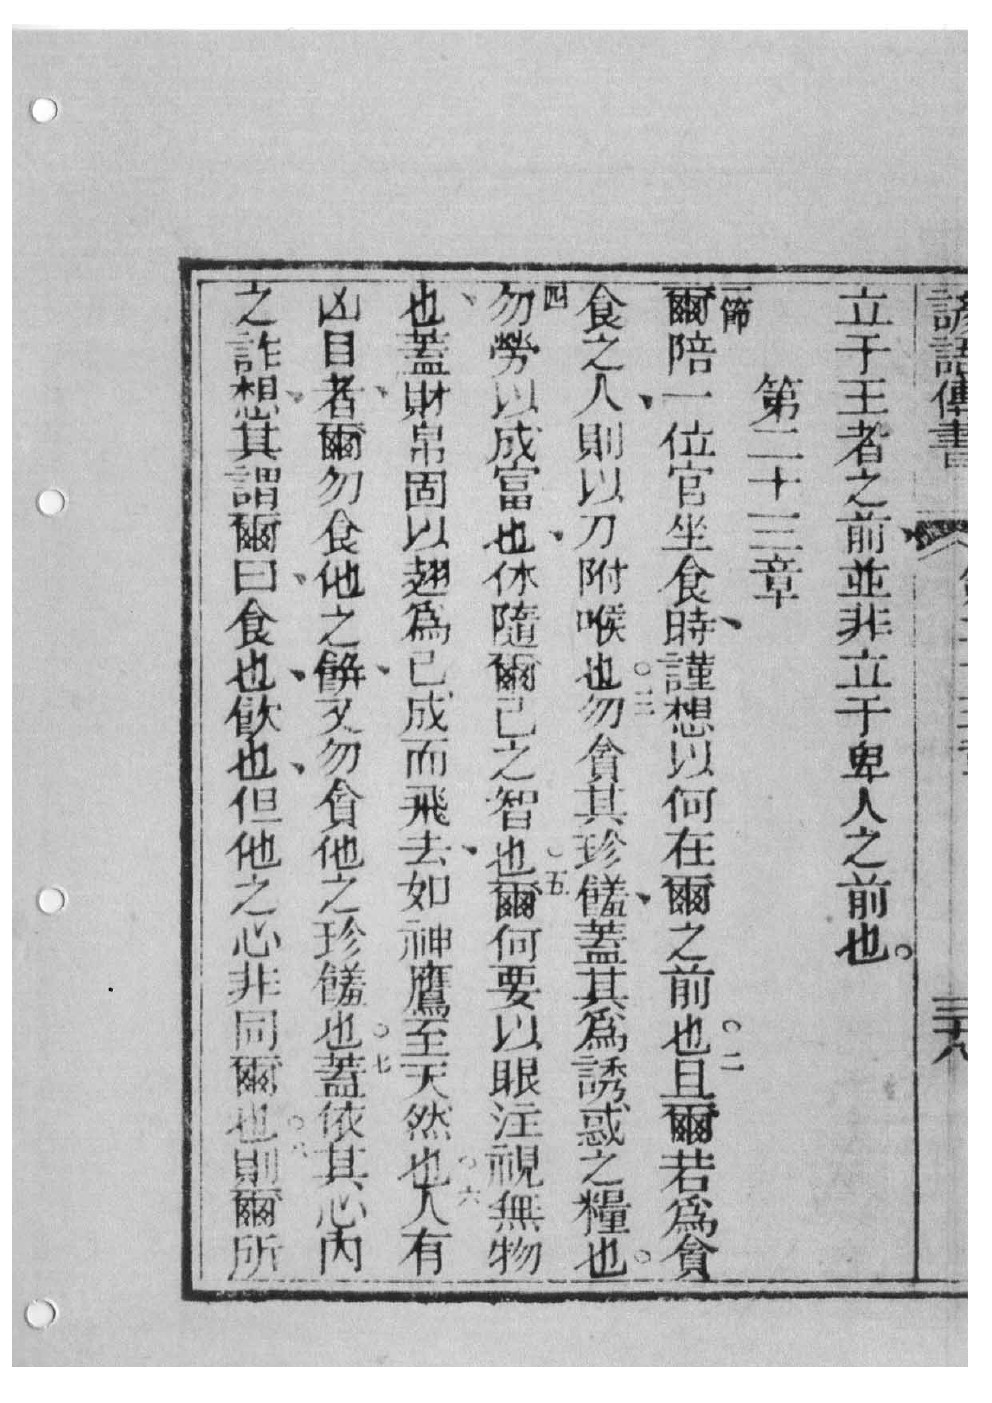 諺語傳書 三十八
立于王者之前並非立于卑人之前也。
第二十三章
一節爾陪一位官坐食時、謹想以何在爾之前也。二且爾若爲貪
食之人、則以刀附喉也。三勿貪其珍饈、蓋其爲誘惑之糧也。
四勿勞以成富也、休隨爾己之智也。五爾何要以眼注視無物
也、蓋財帛固以翅爲己成而飛去、如神鷹至天然也。六人有
凶目者、爾勿食他之餅、又勿貪他之珍饈也。七蓋依其心內
之詐想、其謂爾曰、食也、飲也、但他之心非同爾也。八則爾所